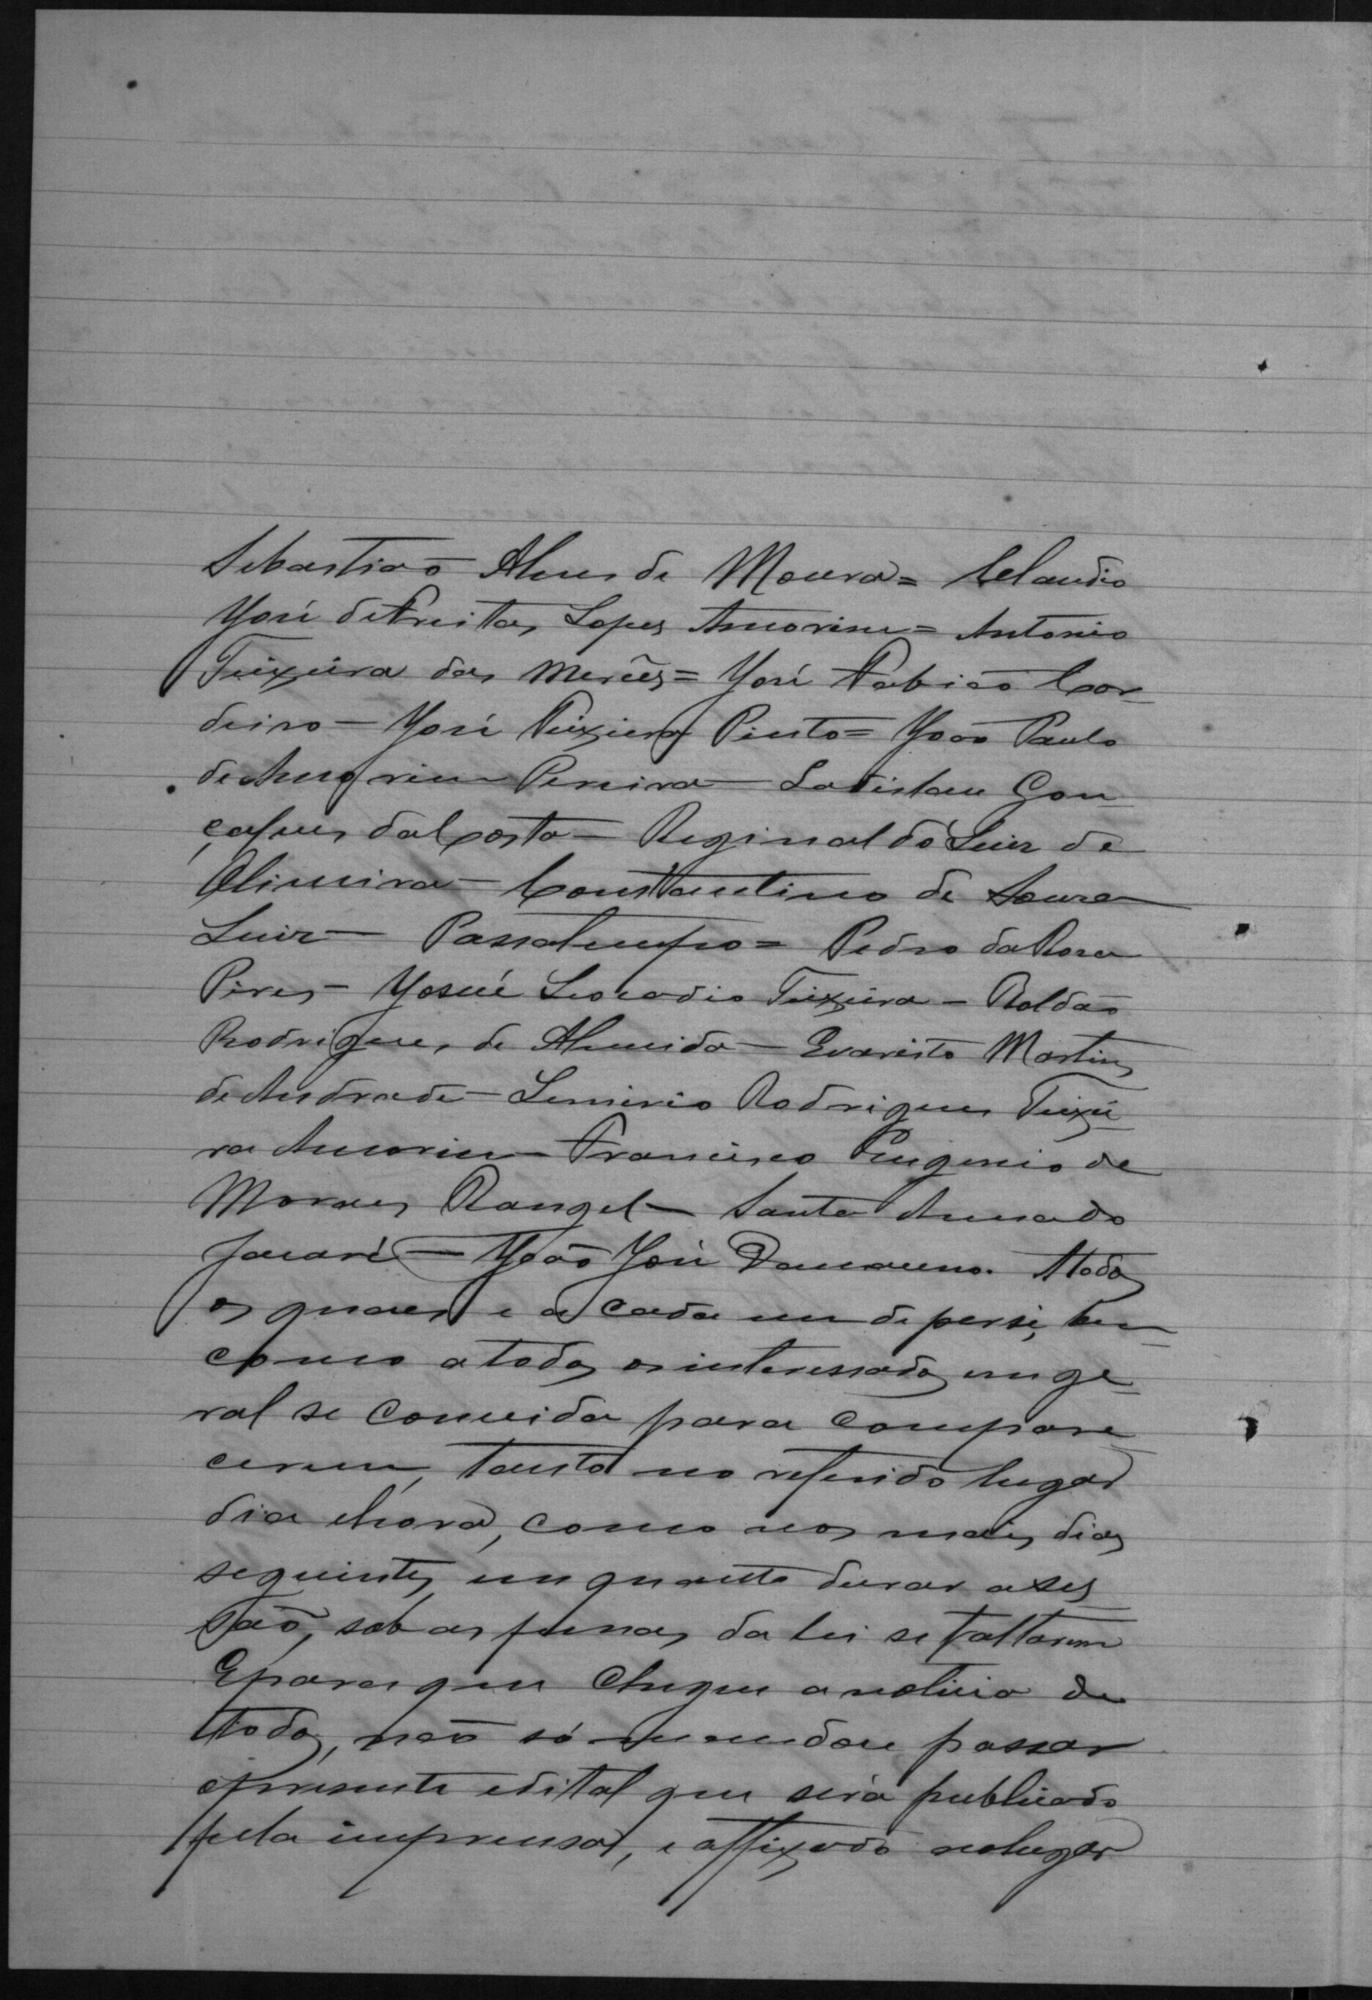 Sebastiaõ Alves de Moura = Claudio
José de Freitas Lopes Amorim = Antonio
Teixeira das Mercês = José Fabiaõ Cor
deiro — José Teixeira Pinto = Joaõ Paulo
de Amorim Pereira — Ladislau Gon
çalves da Costa — Reginaldo Luiz de
Oliveira — Constantino de Souza
Luiz — Passatempo = Pedro da Rosa
Pires — Josué Leocadio Teixeira — Roldaõ
Rodrigues de Almeida — Evaristo Martins
de Andrade — Rodrigues Teixei
ra Amorim — Francisco Eugenio de
Moraes Rangel — Santa Anna do
Jacaré — Joaõ José Damaceno. A todos
os quaes e a cada um de per si, bem
como a todos os interessados em ge
ral se convida para compare
cerem, tanto no referido lugar
dia e hora, como nos mais dias
seguintes, em quanto durar a ses
saõ, sob as penas da lei se faltarem
E para que chegue a noticia de
todos, naõ só mandou passar
o presente edital que será publicado
pela imprensa, e affixado no lugar